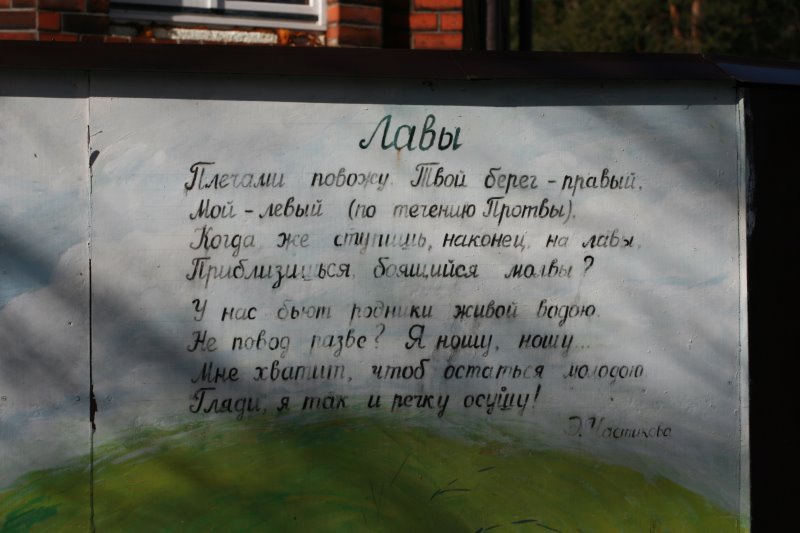 Лавы
Плечами повожу. Твой берег - правый,
Мой - левый (по течению Протвы).
Когда же ступишь, наконец, на лавы,
Приблизишься, боящийся молвы?
У нас бьют родники живой водою.
Не повод разве? Я ношу, ношу...
Мне хватит, чтоб остаться молодою.
Гляди, я так и речку осушу!
Э. Частикова